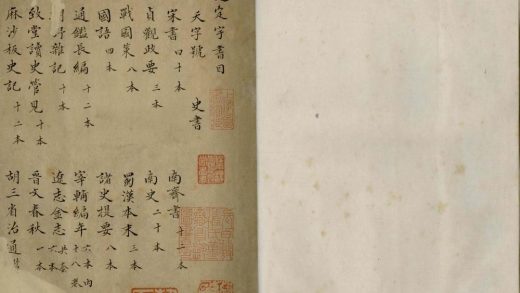 定字書目
天字號 史書
宋書 十本 南齊書 十二本
貞觀政要 三本 南史 二十本
戰國策 八本 蜀漢本末 三本
國語 四本 諸史提要 八本
通鑑長編 十二本 宰輔編年 六本內十八卷
雜記 十本 遼志金志 共套六本
致堂讀史管見 十本 晉文春秋 一本
麻沙板史記 十二本 胡三省治通